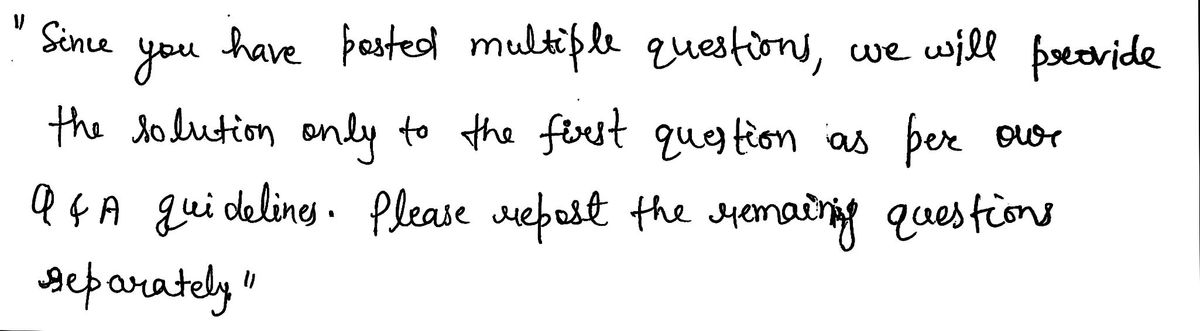 "Since you have posted multiple questions, we will provide
the solution only to the first question as per our
Q & A guidelines. Please repost the remaining questions
separately"